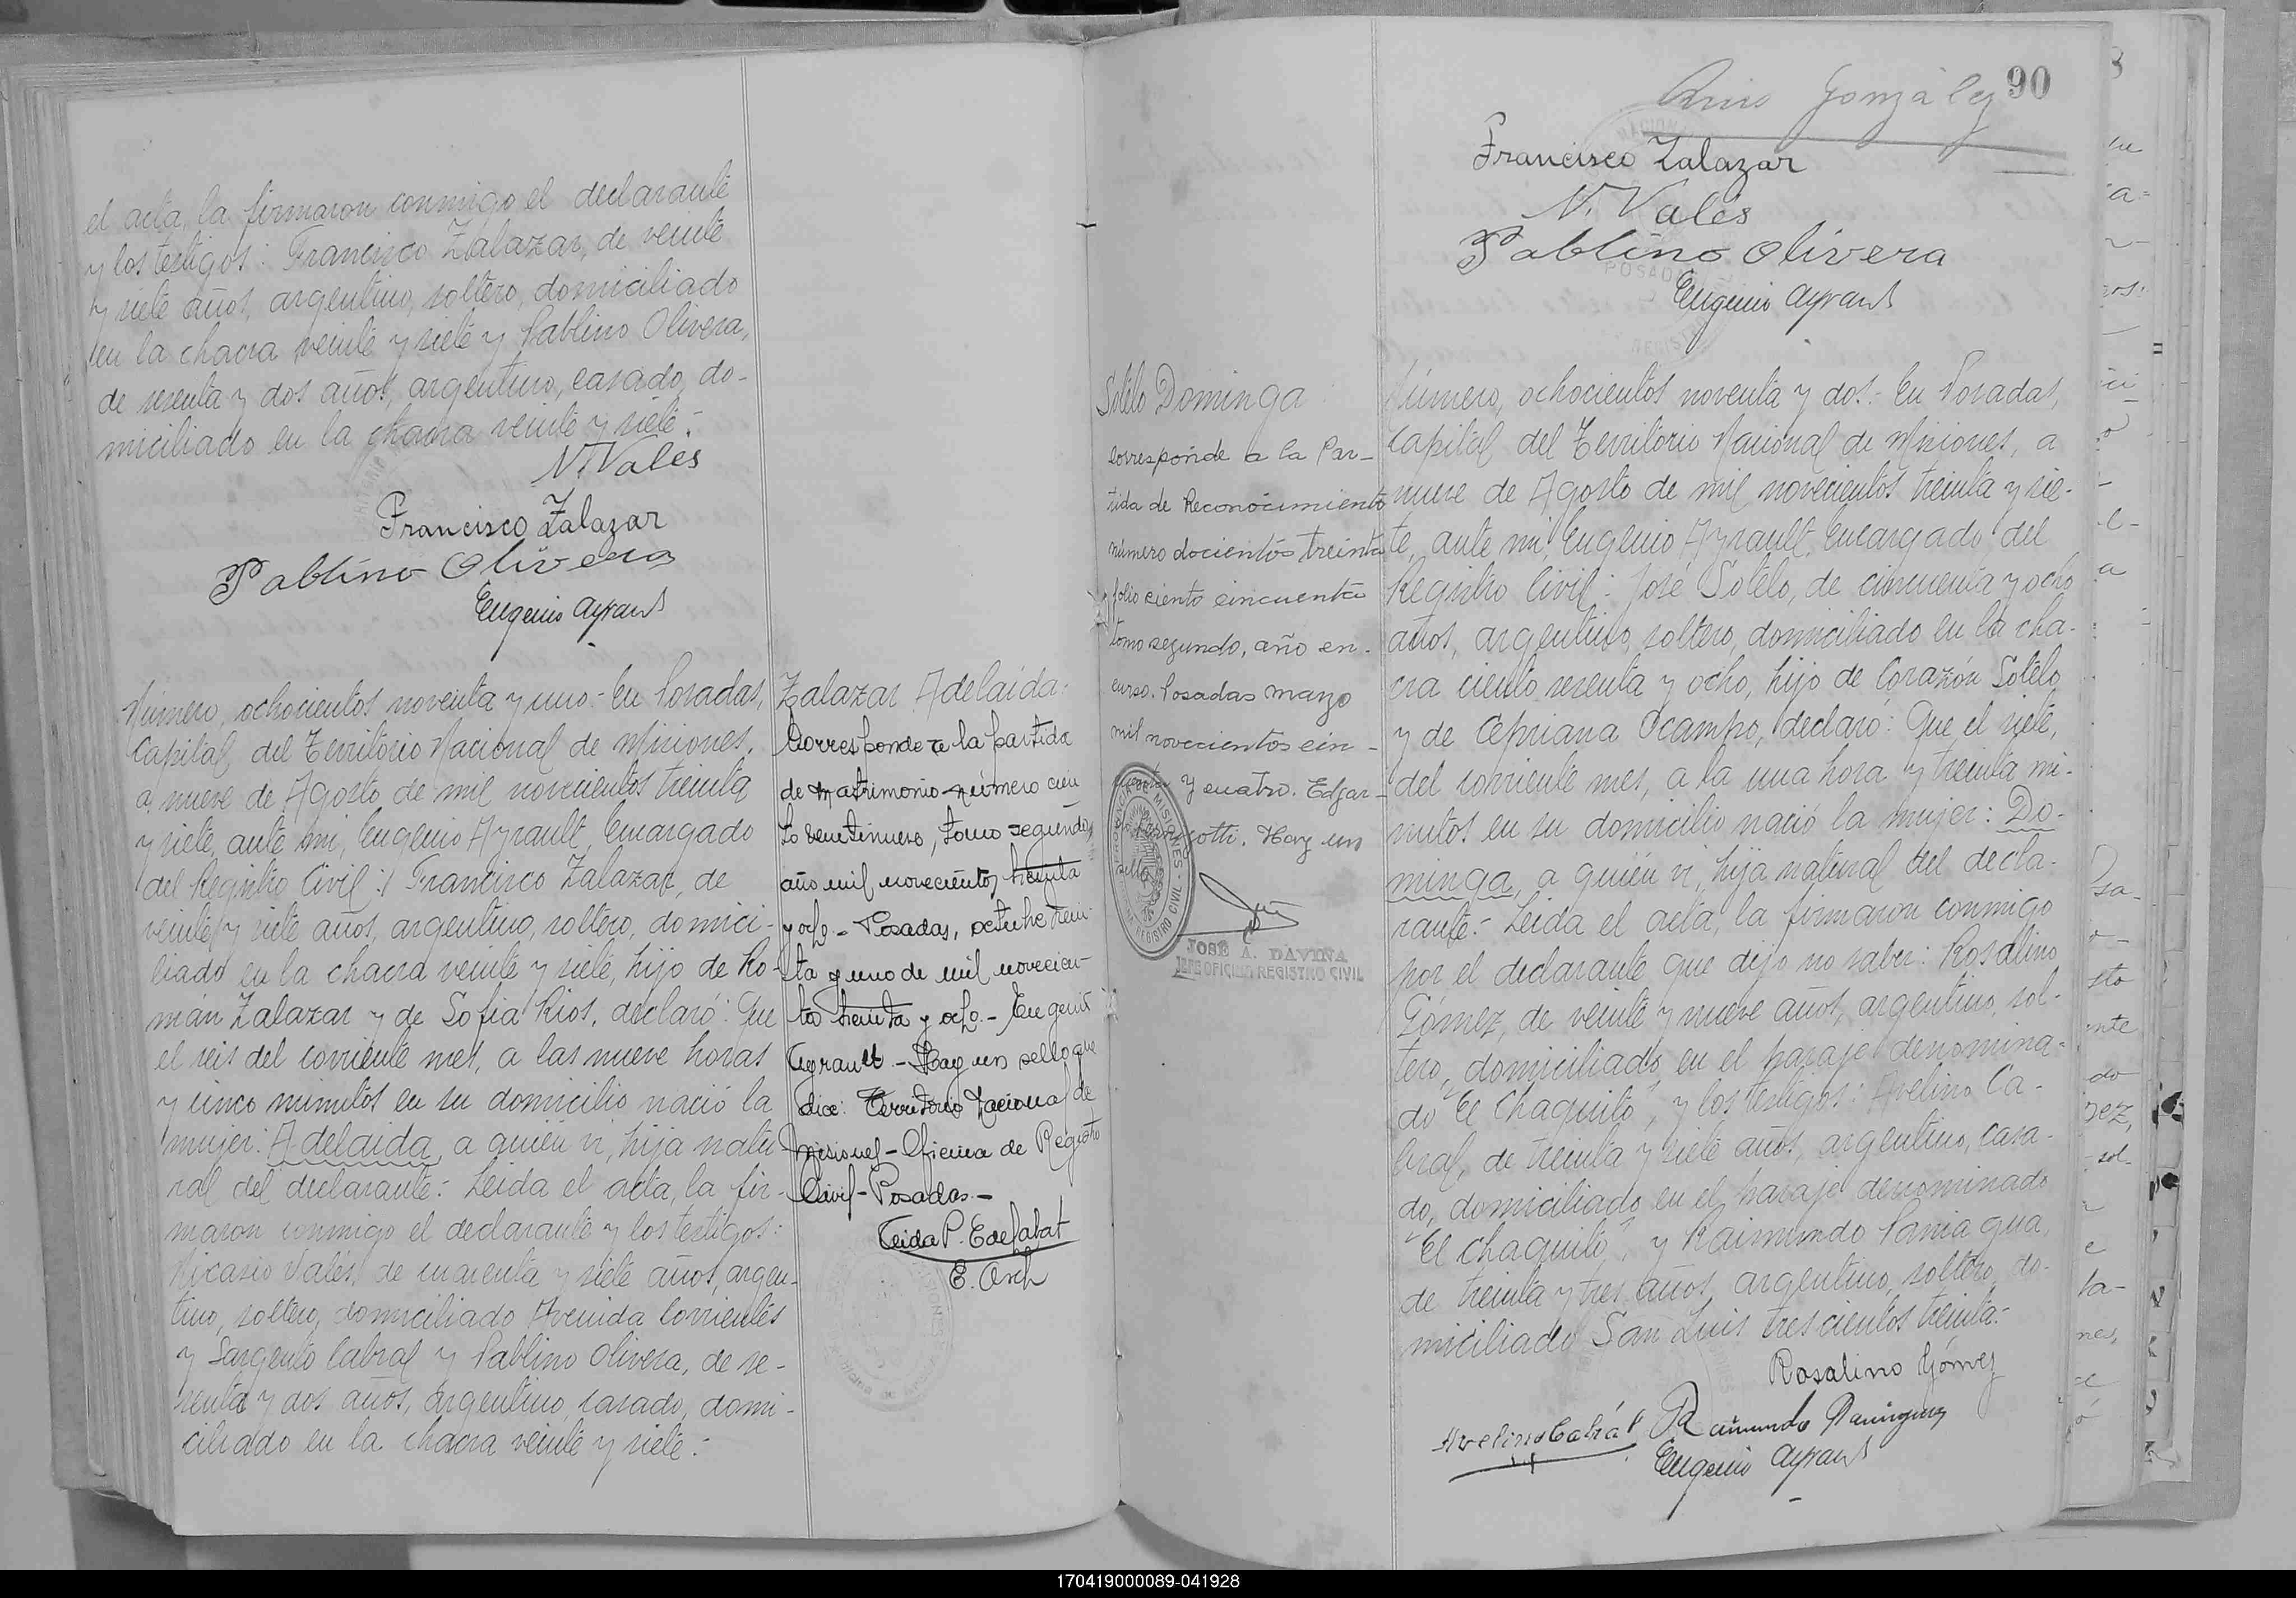 el acta, la firmaron conmigo el declarante
y los testigos: Francisco Zalazar, de veinte
y siete años, argentino, soltero, domiciliado
en la chacra veinte y siete y Pablino Olivera,
de sesenta y dos años, argentino, casado, do-
miciliado en la chacra veinte y siete.-
N. Valés
Francisco Zalazar
Pablino Olivera
Eugenio Ayrault
Número, ochocientos noventa y uno.- En Posadas,
Capital, del Territorio Nacional de Misiones,
a nueve de Agosto de mil novecientos treinta
y siete, ante mi, Eugenio Ayrault, Encargado
del Registro Civil: Francisco Zalazar, de
veinte y siete años, argentino, soltero, domici-
liado en la chacra veinte y siete, hijo de Ro-
mán Zalazar y de Sofia Rios, declaró: Que
el seis del corriente mes, a las nueve horas
y cinco minutos en su domicilio nació la
mujer: Adelaida, a quién vi, hija natu-
ral del declarante.- Leida el acta, la fir-
maron conmigo el declarante y los testigos:
Nicasio Valés, de cuarenta y siete años, argen-
tino, soltero, domiciliado Avenida Corrientes
y Sargento Cabral y Pablino Olivera, de se-
senta y dos años, argentino, casado, domi-
ciliado en la chacra veinte y siete.-
Zalazar Adelaida.
Corresponde a la partida
de matrimonio número cien
to veintinueve, tomo segundo,
año mil novecientos treinta
y ocho.- Posadas, octubre trein-
ta y uno de mil novecien-
tos treinta y ocho.- Eugenio
Ayrault.- Hay un sello que
dice: Territorio Nacional de
Misiones- Oficina de Registro
Civil- Posadas.-
E. Asch
90
González
Francisco Zalazar
N. Valés
Pablino Olivera
Eugenio Ayrault
Sotelo Dominga
corresponde a la Par-
tida de Reconocimiento
número docientos treinta
y folio ciento cincuenta
tomo segundo, año en
curso. Posadas marzo
mil novecientos cin-
cuenta y cuatro. Edgar-
Hay un
sello
MISIONES
REGISTRO CIVIL
JOSE A. DAVIÑA
JEFE OFICINA REGISTRO CIVIL
Número, ochocientos noventa y dos.- En Posadas,
Capital del Territorio Nacional de Misiones, a
nueve de Agosto de mil novecientos treinta y sie-
te, ante mi, Eugenio Ayrault, Encargado del
Registro Civil: José Sotelo, de cincuenta y ocho
años, argentino, soltero, domiciliado en la cha-
cra ciento sesenta y ocho, hijo de Corazón Sotelo
y de Cipriana Ocampo, declaró: Que el siete,
del corriente mes, a la una hora y treinta mi-
nutos en su domicilio nació la mujer: Do-
minga, a quién vi, hija natural del decla-
rante.- Leida el acta, la firmaron conmigo
por el declarante que dijo no saber: Rosalino
Gómez, de veinte y nueve años, argentino, sol-
tero, domiciliado en el paraje denomina-
do "El Chaquito", y los testigos: Avelino Ca-
bral, de treinta y siete años, argentino, casa-
do, domiciliado en el paraje denominado
"El Chaquito", y Raimundo Paniagua,
de treinta y tres años, argentino, soltero, do-
miciliado San Luis trescientos treinta.-
Rosalino Gómez
Avelino Cabrál Raimundo Paniagua
Eugenio Ayrault
170419000089-041928